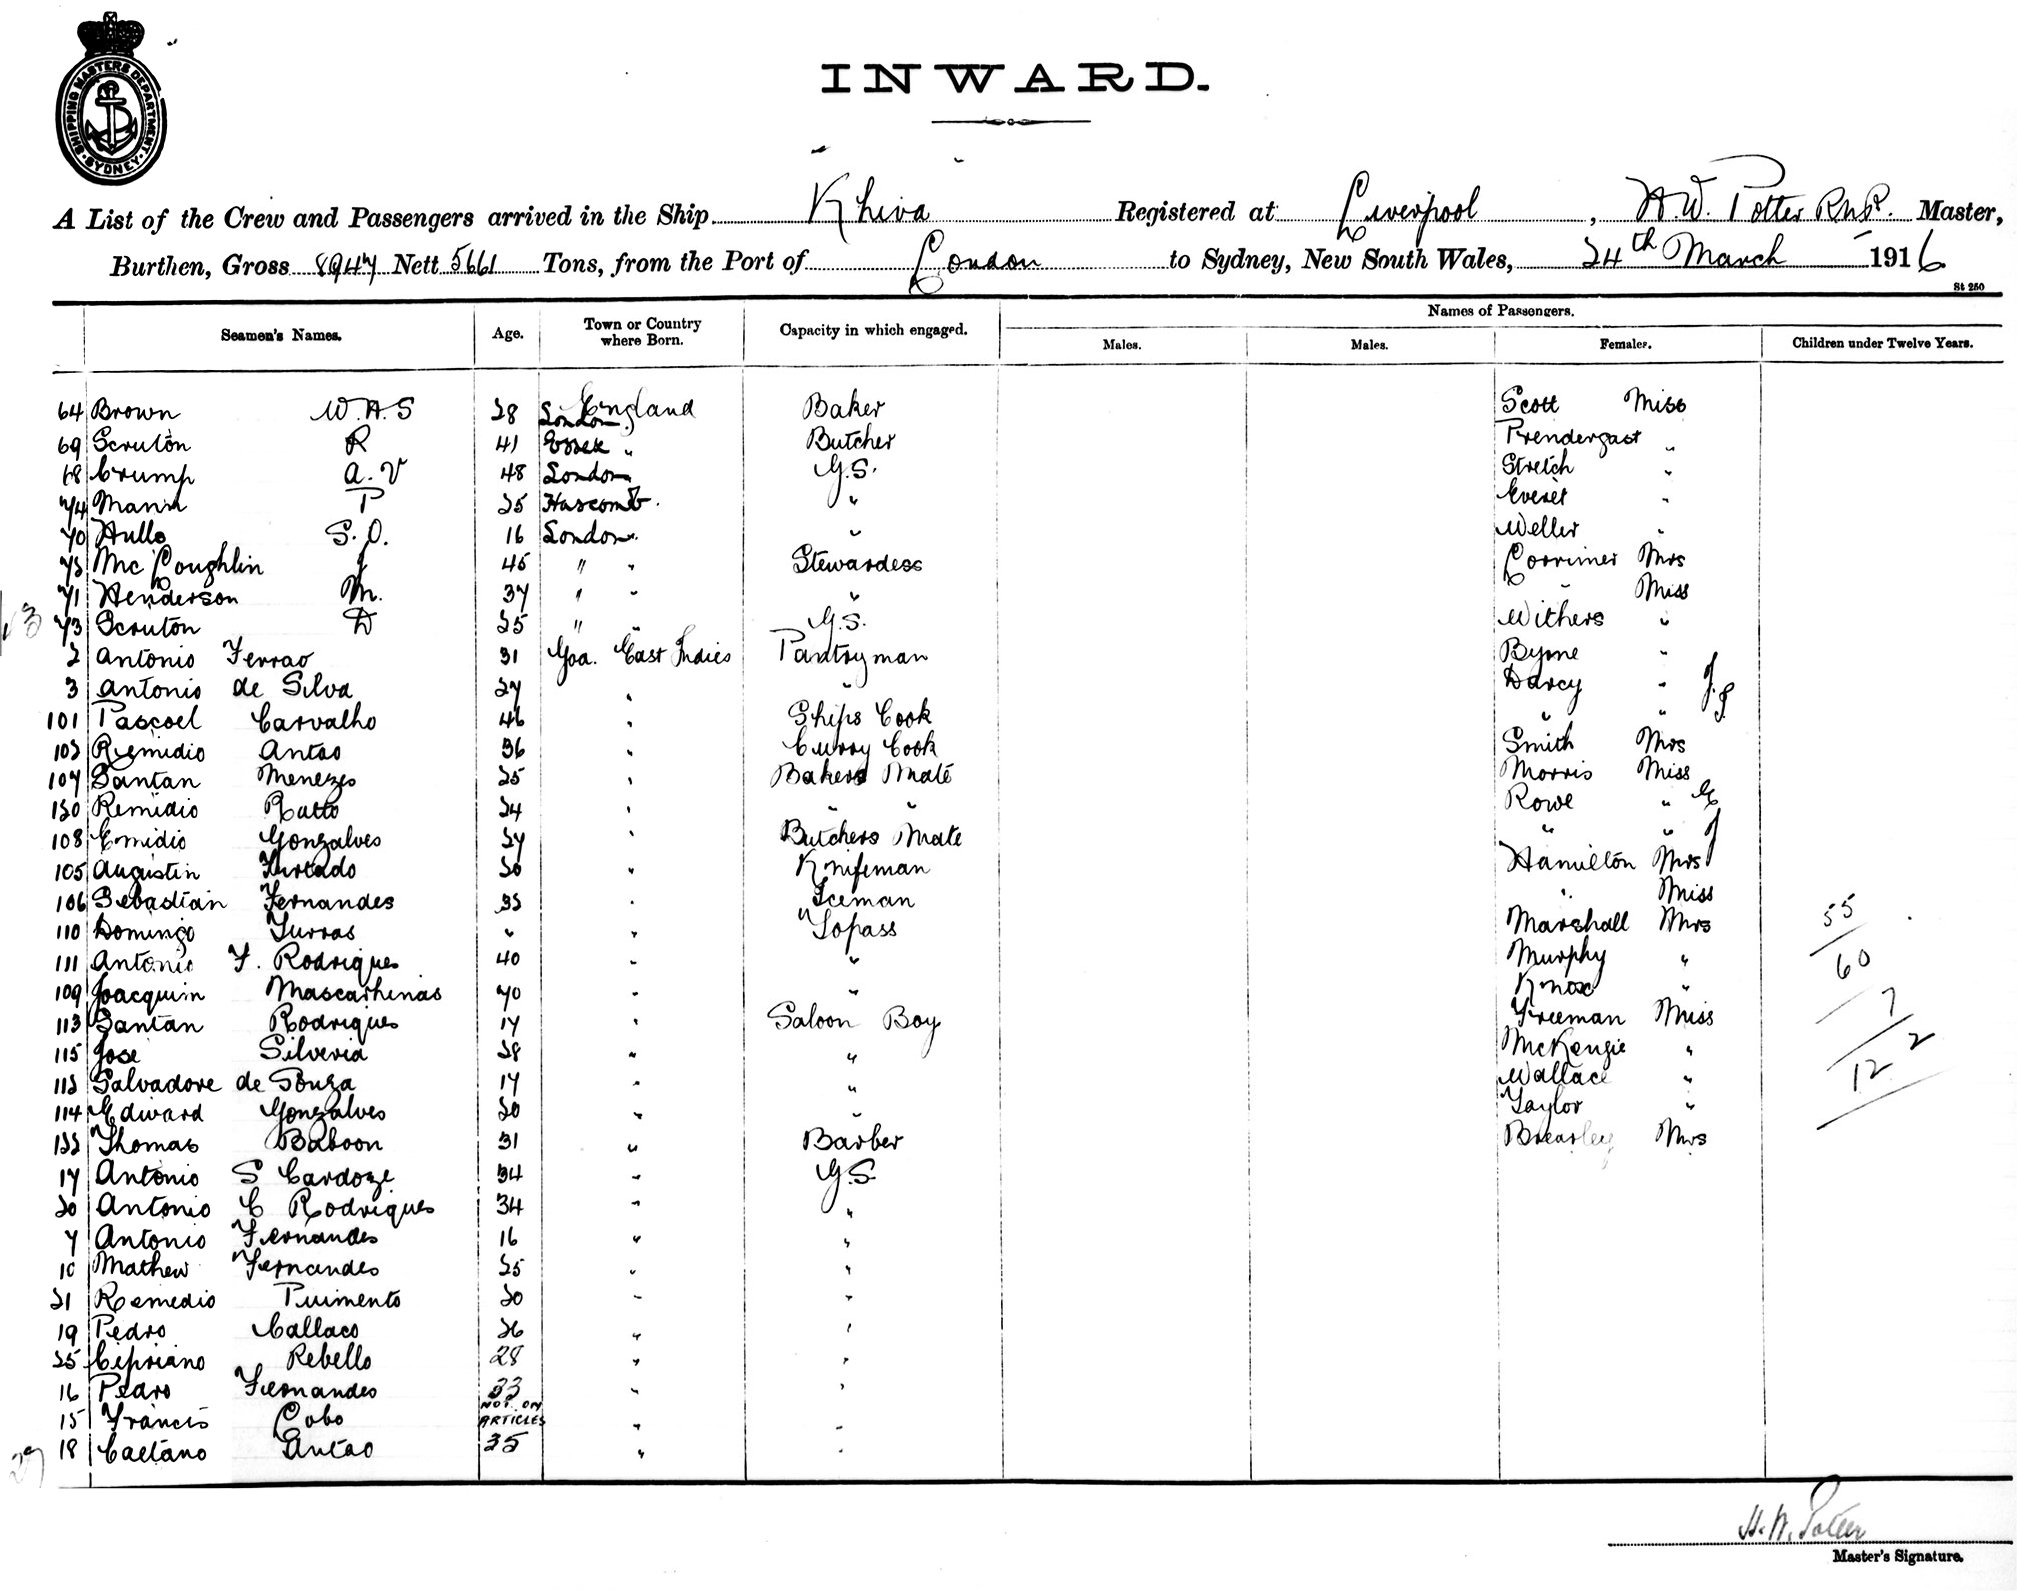 SHIPPING MASTERS DEPARTMENT · SYDNEY ·
INWARD.
A List of the Crew and Passengers arrived in the Ship Khiva Registered at Liverpool, H.W. Potter R.N.R. Master,
Burthen, Gross 8947 Nett 5661 Tons, from the Port of London to Sydney, New South Wales, 24th March 1916
St 250
Seamen's Names. Age. Town or Country where Born. Capacity in which engaged. Names of Passengers.
Males. Males. Females. Children under Twelve Years.
64 Brown W.A.S 28 London England Baker Scott Miss
69 Scruton R 41 Essex " Butcher Prendergast "
68 Crump A.V 48 London G.S. Stretch "
74 Mann P 25 Hascomb. " Everet "
70 Hulls S.O. 16 London. " Weller "
72 McCoughlin J 45 " " Stewardess Corrimer Mrs
71 Henderson M. 37 " " " " Miss
73 Scruton D 25 " " G.S. Withers "
2 Antonio Ferrao 31 Goa. East Indies Pantryman Byrne "
3 Antonio de Silva 27 " " Darcy " J.
101 Pascoel Carvalho 46 " Ships Cook " " J
102 Remidio Antao 36 " Curry Cook Smith Mrs
107 Santan Menezes 25 " Bakers Mate Morris Miss
120 Remidio Ratto 24 " " " Rowe " G
108 Emidio Gonzalves 27 " Butchers Mate " " J
105 Augustin Furtado 20 " Knifeman Hamilton Mrs
106 Sebastian Fernandes 32 " Iceman " Miss
110 Domingo Turras " " Topass Marshall Mrs
111 Antonio F. Rodrigues 40 " " Murphy "
109 Joacquim Mascarhinas 40 " " Knox "
113 Santan Rodrigues 17 " Saloon Boy Freeman Miss
115 Jose Silveria 28 " " McKenzie "
112 Salvadore de Souza 17 " " Wallace "
114 Edward Gonzalves 20 " " Taylor "
122 Thomas Baboon 31 " Barber Brearley Mrs
17 Antonio S Cardoze 34 " G.S.
20 Antonio C Rodrigues 34 " "
7 Antonio Fernandes 16 " "
10 Mathew Fernandes 25 " "
21 Remedio Puimento 20 " "
19 Pedro Callaco 26 " "
25 Cipriano Rebello 28 " "
16 Pedro Fernandes 33 " "
15 Francis Cobo NOT ON ARTICLES " "
18 Caetano Antao 35 " "
55
60
7
2
12
29
H.W. Potter
Master's Signature.